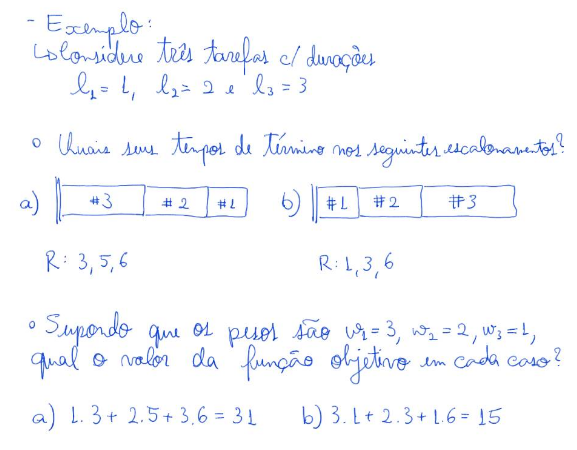 - Exemplo:
↳ Considere três tarefas c/ durações
l₁ = 1, l₂ = 2 e l₃ = 3
o Quais seus tempos de término nos seguintes escalonamentos?
a) #3 #2 #1 b) #1 #2 #3
R: 3, 5, 6 R: 1, 3, 6
o Supondo que os pesos são w₁ = 3, w₂ = 2, w₃ = 1,
qual o valor da função objetivo em cada caso?
a) 1.3 + 2.5 + 3.6 = 31 b) 3.1 + 2.3 + 1.6 = 15